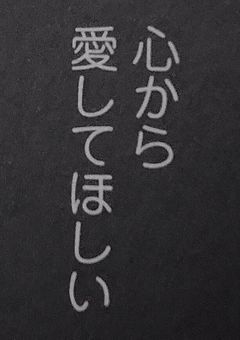 心から
愛してほしい